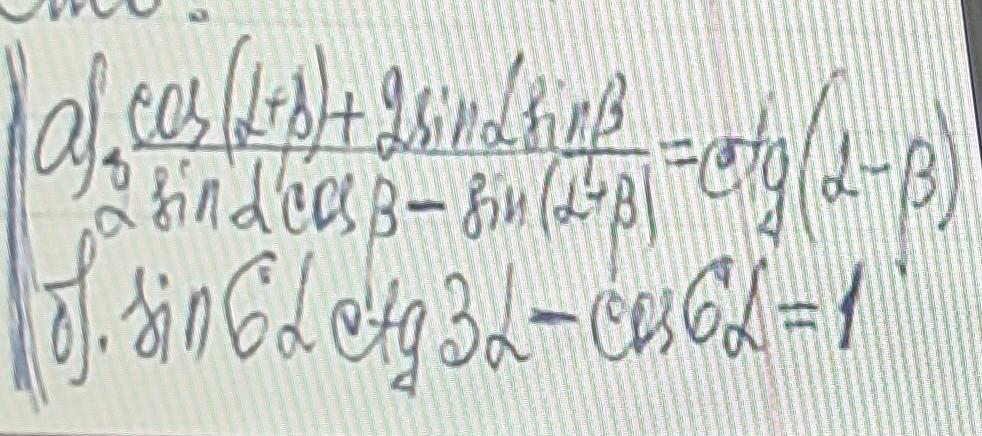 а). cos(α+β)+2sinα sinβ / 2 sinα cosβ − sin(α+β) = ctg(α−β)
б). sin6α ctg3α − cos6α = 1